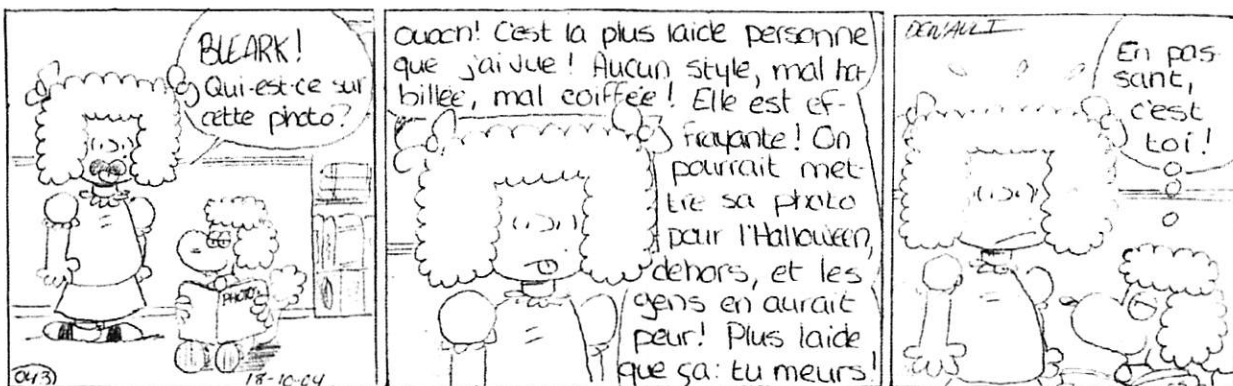 BLEARK!
Qui-est-ce sur
cette photo?
PHOTO
043
18-10-04
ouach! C'est la plus laide personne
que j'ai vue! Aucun style, mal ha-
billée, mal coiffée! Elle est ef-
frayante! On
pourrait met-
tre sa photo
pour l'Halloween,
dehors, et les
gens en aurait
peur! Plus laide
que ça: tu meurs!
DENAULT
En pas-
sant,
c'est
toi!